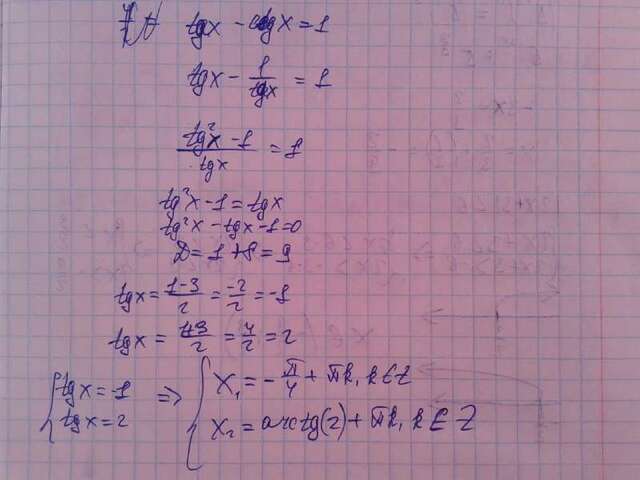 tgx - ctgx = 1
tgx - 1/tgx = 1
(tg²x - 1)/tgx = 1
tg²x - 1 = tgx
tg²x - tgx - 1 = 0
D = 1 + 8 = 9
tgx = (1-3)/2 = -2/2 = -1
tgx = (1+3)/2 = 4/2 = 2
{ tgx = -1 => { x₁ = -π/4 + πk, k∈Z
{ tgx = 2 { x₂ = arctg(2) + πk, k∈Z